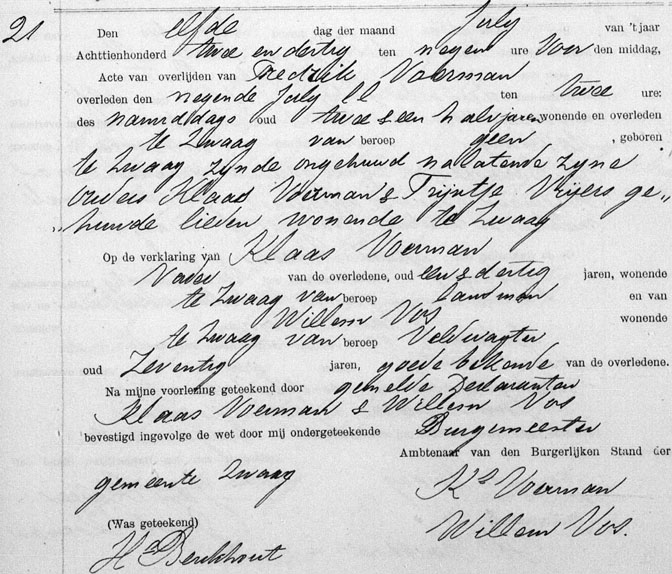 21
Den elfde dag der maand July van 't jaar
Achttienhonderd twee en dertig ten negen ure Voor den middag,
Acte van overlijden van Fredrik Voerman
overleden den negende July ll ten twee ure:
des namiddags oud twee & een half jaren, wonende en overleden
te Zwaag van beroep geen, geboren
te Zwaag zynde ongehuwd nalatende zyne
ouders Klaas Voerman & Trijntje Vrijers ge„
„huwde lieden wonende te Zwaag
Op de verklaring van Klaas Voerman
Vader van de overledene, oud een & dertig jaren, wonende
te Zwaag van beroep landman en van
Willem Vos wonende
te Zwaag van beroep Veldwagter
oud Zeventig jaren, goede bekende van de overledene.
Na mijne voorlezing geteekend door gemelde Declaranten
Klaas Voerman & Willem Vos
bevestigd ingevolge de wet door mij ondergeteekende Burgemeester
Ambtenaar van den Burgerlijken Stand der
gemeente Zwaag
Ks Voerman
(Was geteekend)
Willem Vos.
Hs Benkhout